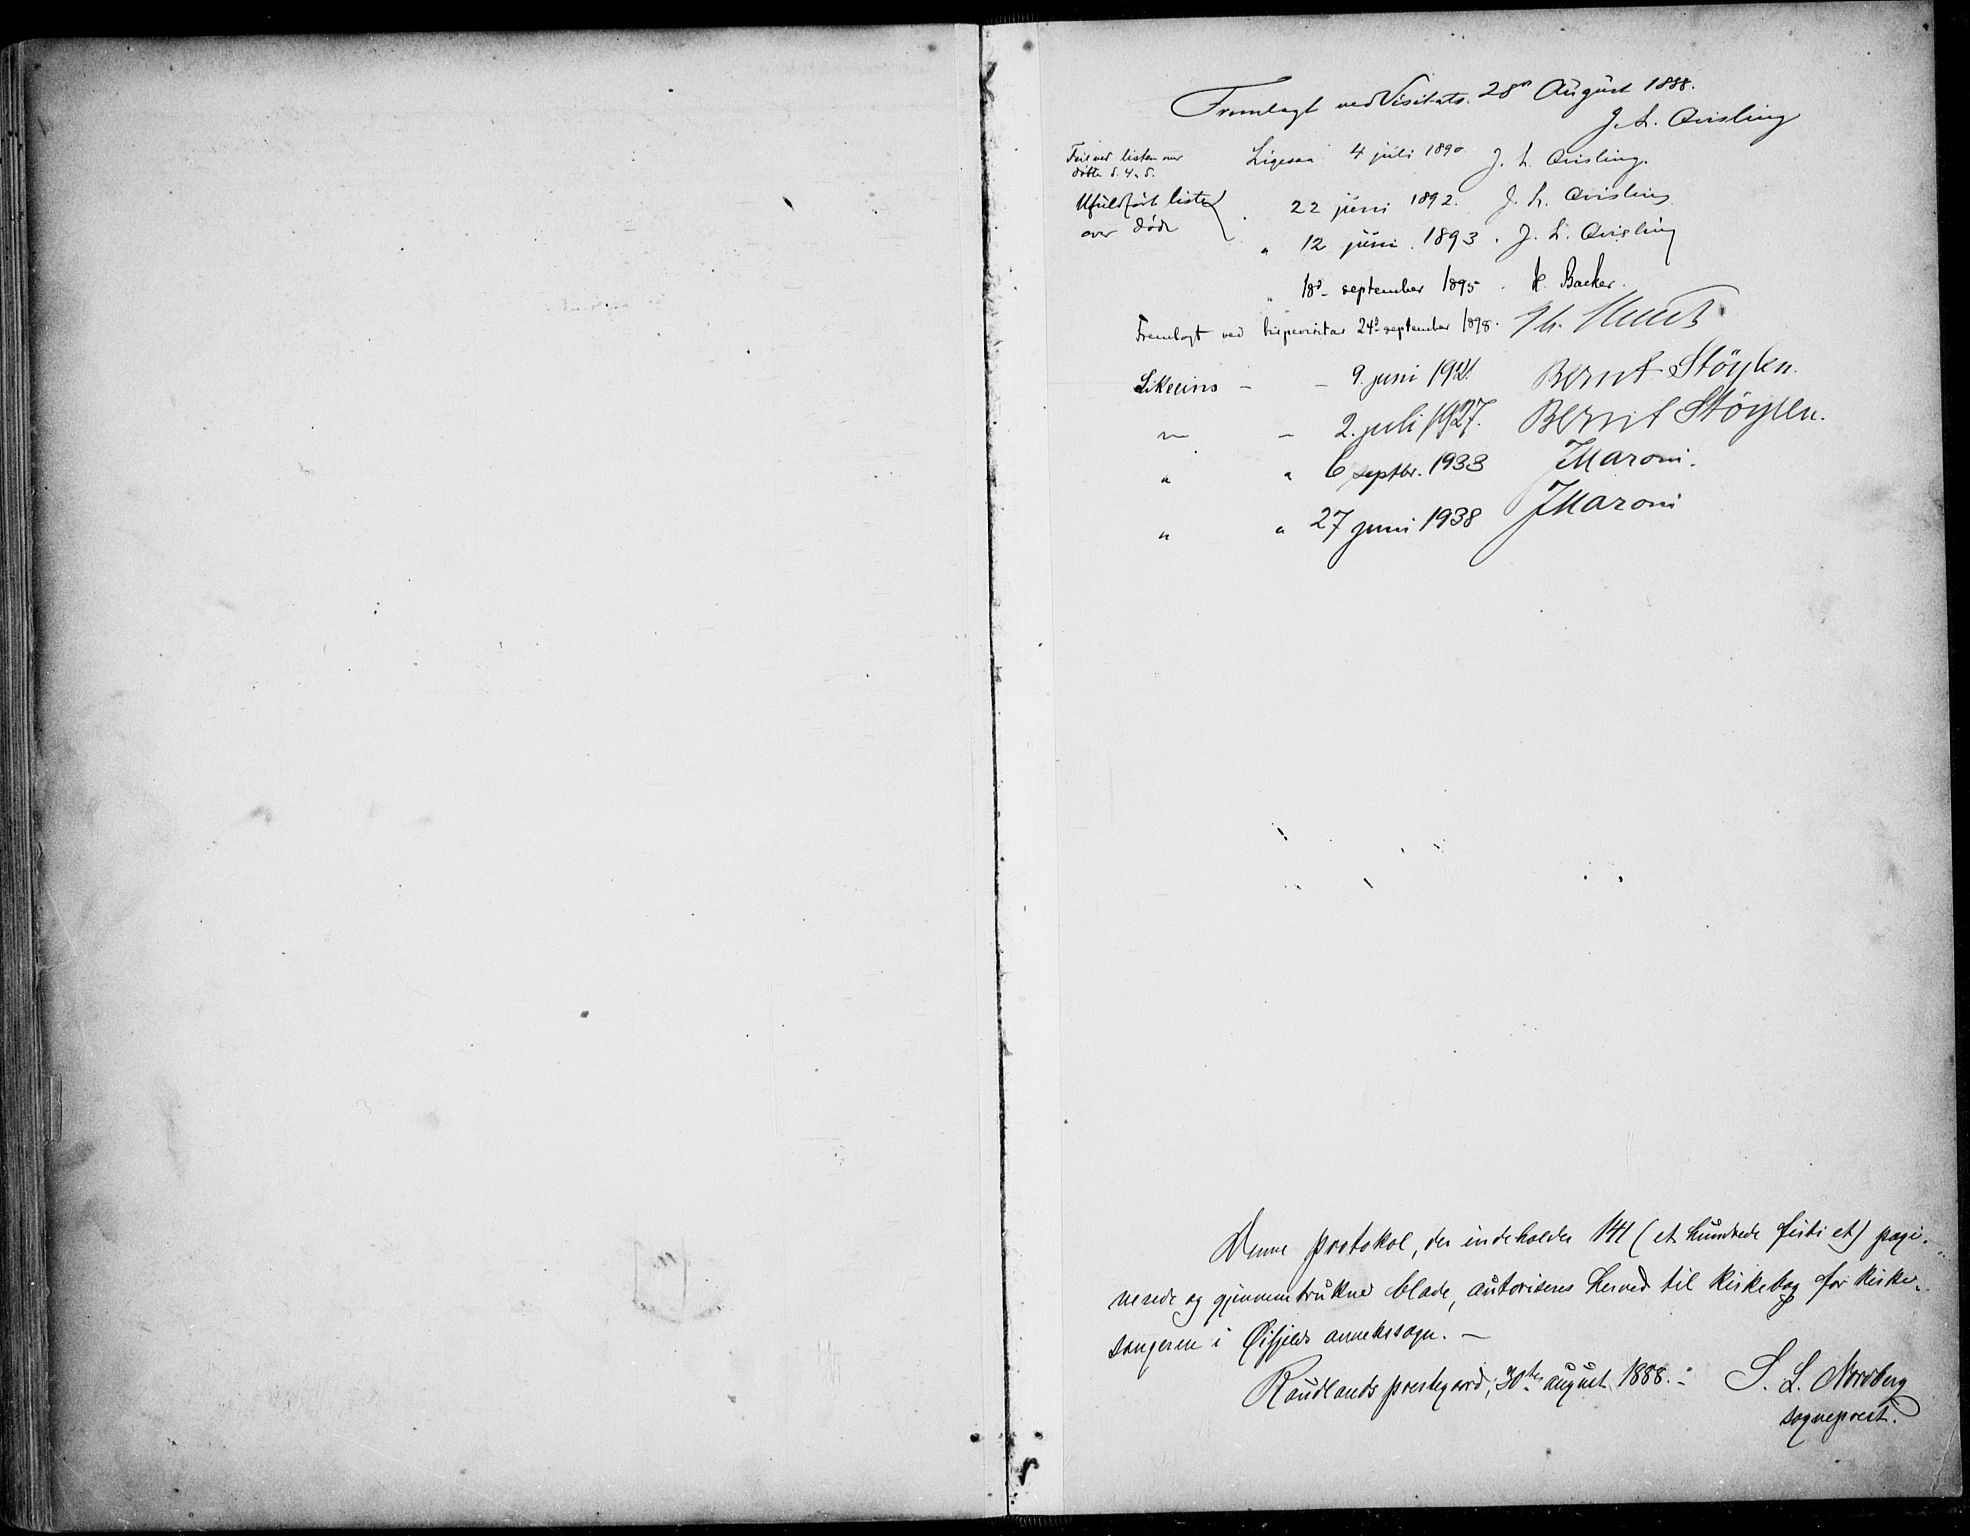 Fremlagt ved Visitats. 28de August 1888.
J. L. Qvisling
Feil ved listen over døde S. 4. 5.
Ligesaa 4 juli 1890. J. L. Qvisling.
Ufuldført liste over døde
" 22 juni 1892. J. L. Qvisling
" 12 juni 1893. J. L. Qvisling
" 18de september 1895. H. Backer.
Fremlagt ved bispevisitas 24de september 1898.
Likeeins – – 9. juni 1921. Bernt Støylen.
– – 2. juli 1927. Bernt Støylen.
" " 6 septbr. 1933 J Maroni.
" " 27 juni 1938 J Maroni
Denne protokol, der indeholder 141 (et hundrede firti et) pagi-
nerede og gjennemtrukne blade, autoriseres herved til kirkebog for kirke-
sangeren i Øifjelds annekssogn. –
Raudlands prestegaard, 30te august 1888. – S. L. Nordberg
sogneprest.